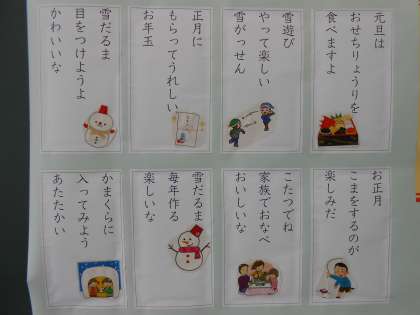 元旦は
おせちりょうりを
食べますよ
雪遊び
やって楽しい
雪がっせん
正月に
もらってうれしい
お年玉
雪だるま
目をつけようよ
かわいいな
お正月
こまをするのが
楽しみだ
こたつでね
家族でおなべ
おいしいな
雪だるま
毎年作る
楽しいな
かまくらに
入ってみよう
あたたかい